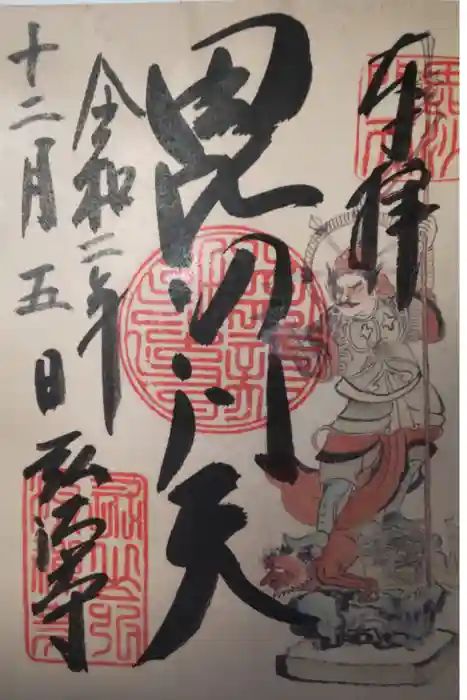 奉拝
毘沙門天
令和二年
十二月五日
弘法寺